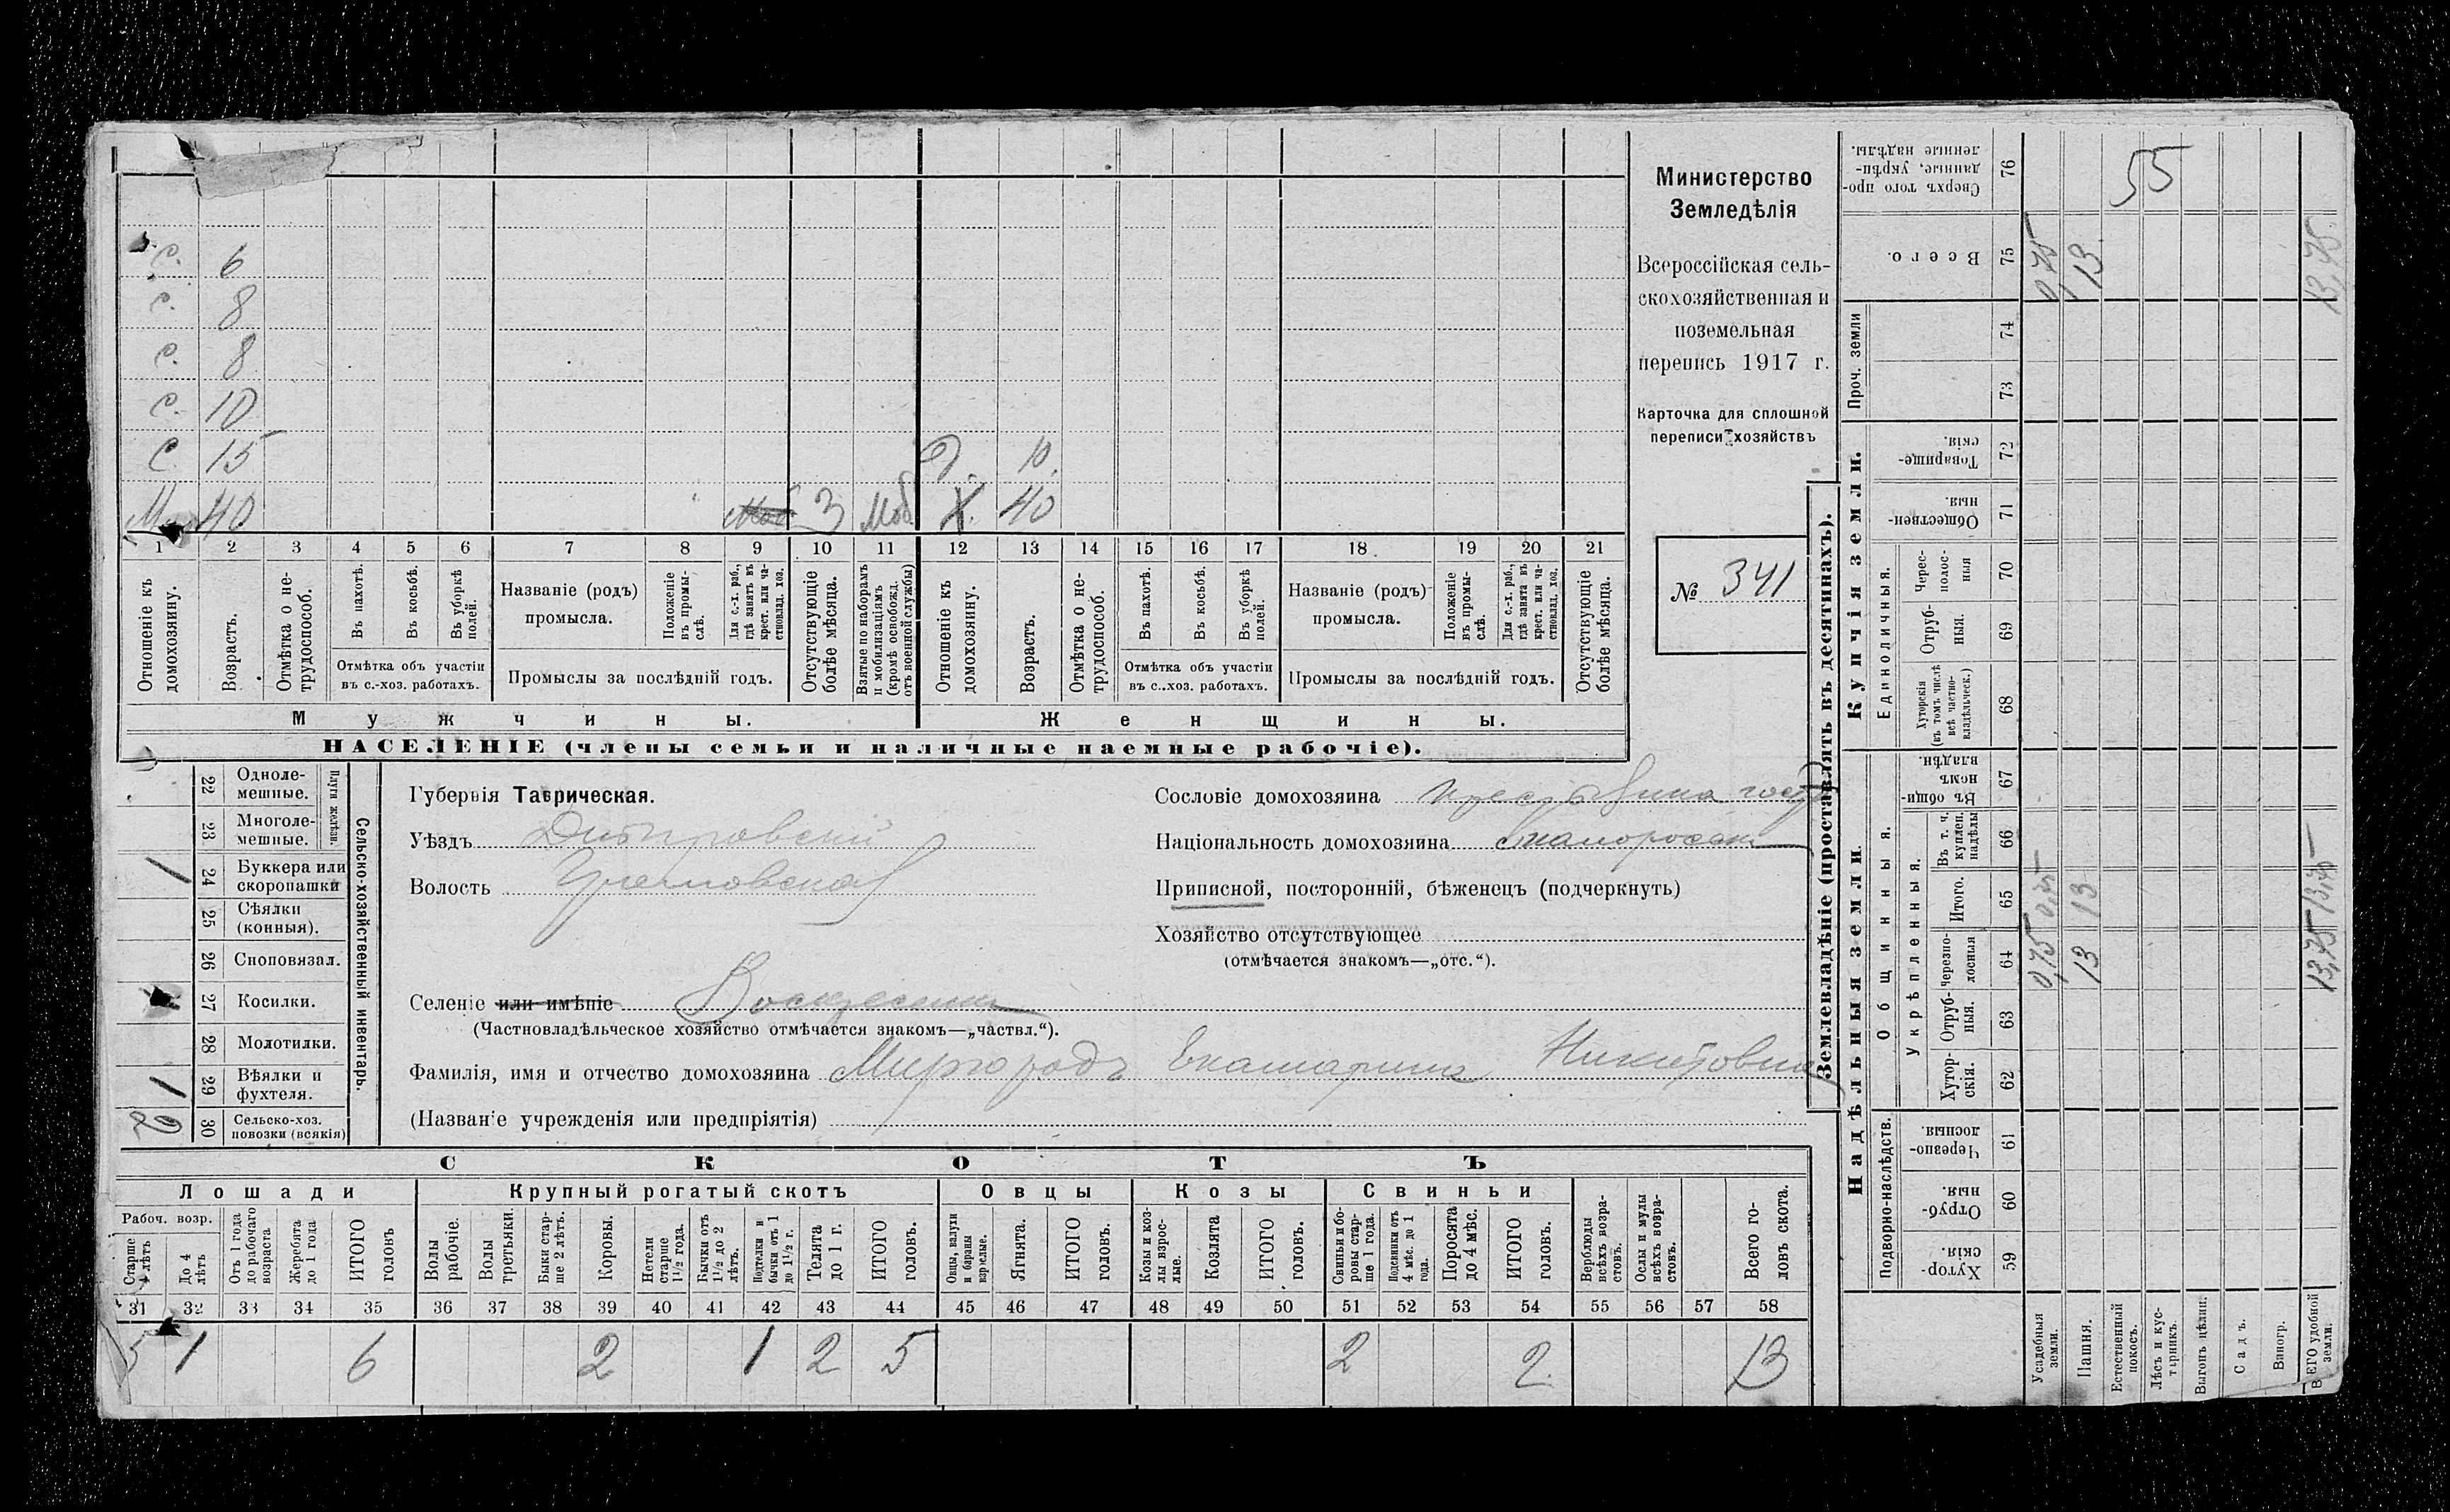 С. 6
С. 8
С. 8
С. 10
С. 15 Д. 10.
М 40 3 Моб. Х. 40
1 2 3 4 5 6 7 8 9 10 11 12 13 14 15 16 17 18 19 20 21
Отношеніе къ домохозяину.
Возрастъ.
Отмѣтка о не-
трудоспособ.
Въ пахотѣ.
Въ косьбѣ.
Въ уборкѣ
полей.
Отмѣтка объ участіи
въ с.-хоз. работахъ.
Названіе (родъ)
промысла.
Положеніе
въ промы-
слѣ.
Для с.-х. раб.,
гдѣ занятъ въ
крест. или ча-
стновлад. хоз.
Промыслы за послѣдній годъ.
Отсутствующіе
болѣе мѣсяца.
Взятые по наборамъ
и мобилизаціямъ
(кромѣ освобожд.
отъ военной службы)
Отношеніе къ
домохозяину.
Возрастъ.
Отмѣтка о не-
трудоспособ.
Въ пахотѣ.
Въ косьбѣ.
Въ уборкѣ
полей.
Отмѣтка объ участіи
въ с.-хоз. работахъ.
Названіе (родъ)
промысла.
Положеніе
въ промы-
слѣ.
Для с.-х. раб.,
гдѣ занята въ
крест. или ча-
стновлад. хоз.
Промыслы за послѣдній годъ.
Отсутствующіе
болѣе мѣсяца.
Мужчины.
Женщины.
НАСЕЛЕНІЕ (члены семьи и наличные наемные рабочіе).
Министерство
Земледѣлія
Всероссійская сель-
скохозяйственная и
поземельная
перепись 1917 г.
Карточка для сплошной
переписи хозяйствъ
№ 341
22 Одноле-
мешные.
23 Многоле-
мешные.
Плуги желѣзн.
1 24 Буккера или
скоропашки
25 Сѣялки
(конныя).
26 Сноповязал.
27 Косилки.
28 Молотилки.
1 29 Вѣялки и
фухтеля.
2 30 Сельско-хоз.
повозки (всякія)
Сельско-хозяйственный инвентарь.
Губернія Таврическая.
Уѣздъ Днѣпровскій
Волость
Селеніе или имѣніе
(Частновладѣльческое хозяйство отмѣчается знакомъ—„частвл.“).
Фамилія, имя и отчество домохозяина Миргородъ Екатарина Никитовна
(Названіе учрежденія или предпріятія)
Сословіе домохозяина
Національность домохозяина
Приписной, посторонній, бѣженецъ (подчеркнуть)
Хозяйство отсутствующее
(отмѣчается знакомъ—„отс.“).
СКОТЪ
Лошади
Крупный рогатый скотъ
Овцы
Козы
Свиньи
Рабоч. возр.
Старше
4 лѣтъ
До 4
лѣтъ
Отъ 1 года
до рабочаго
возраста
Жеребята
до 1 года
ИТОГО
головъ
Волы
рабочіе.
Волы
третьяки.
Быки стар-
ше 2 лѣтъ.
Коровы.
Нетели
старше
1½ года.
Бычки отъ
1½ до 2
лѣтъ.
Подтелки и
бычки отъ 1
до 1½ г.
Телята
до 1 г.
ИТОГО
головъ.
Овцы, валухи
и бараны
взрослые.
Ягнята.
ИТОГО
головъ.
Козы и коз-
лы взрос-
лые.
Козлята
ИТОГО
головъ.
Свиньи и бо-
ровы стар-
ше 1 года.
Подсвинки отъ
4 мѣс. до 1
года.
Поросята
до 4 мѣс.
ИТОГО
головъ.
Верблюды
всѣхъ возра-
стовъ.
Ослы и мулы
всѣхъ возра-
стовъ.
Всего го-
ловъ скота.
31 32 33 34 35 36 37 38 39 40 41 42 43 44 45 46 47 48 49 50 51 52 53 54 55 56 57 58
5 1 6 2 1 2 5 2 2 13
Землевладѣніе (проставлять въ десятинахъ).
Купчія земли.
Надѣльныя земли.
Сверхъ того про-
данные, укрѣп-
ленные надѣлы.
76
55
Всего.
75
0,75 13 13,75
Проч. земли
74
73
Товарище-
скія.
72
Обществен-
ныя.
71
Единоличныя.
Черес-
полос-
ныя
70
Отруб-
ныя.
69
Хуторскія
(въ томъ числѣ
всѣ частно-
владѣльческ.)
68
Общинныя.
Въ общи-
номъ
владѣн.
67
Укрѣпленныя.
Въ т. ч.
куплен.
надѣлы
66
Итого.
65
13
Черезпо-
лосныя
64
0,75 13 13,75
Отруб-
ныя.
63
Хутор-
скія.
62
Подворно-наслѣдств.
Черезпо-
лосныя.
61
Отруб-
ныя.
60
Хутор-
скія.
59
Усадебныя
земли.
Пашня.
Естественный
покосъ.
Лѣсъ и кус-
тарникъ.
Выгонъ цѣлин.
Садъ.
Виногр.
ВСЕГО удобной
земли.